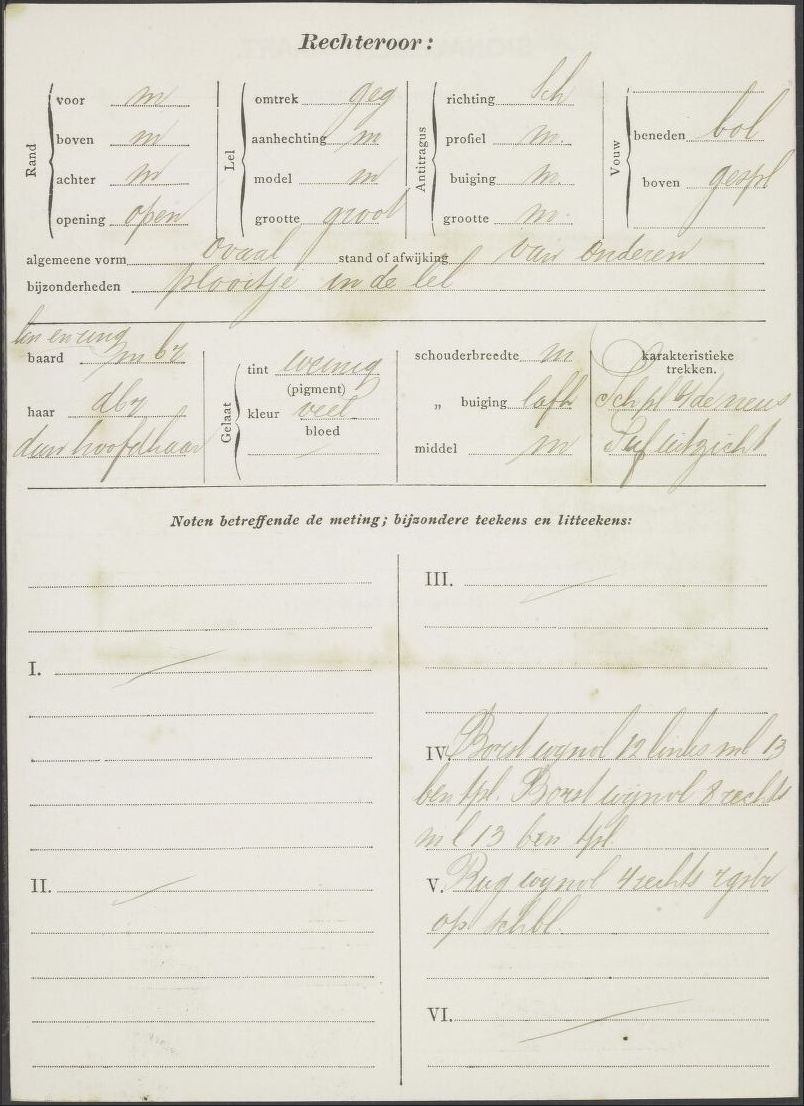 Rechteroor:
Rand
voor m
boven m
achter m
opening open
Lel
omtrek geg
aanhechting m
model m
grootte groot
Antitragus
richting sch
profiel m.
buiging m.
grootte m.
Vouw
beneden bol
boven gespl
algemeene vorm ovaal stand of afwijking van onderen
bijzonderheden plooitje in de lel
baard m br
haar dbr
dun hoofdhaar
Gelaat
tint weinig
(pigment)
kleur veel
bloed
schouderbreedte m
„ buiging
middel m
karakteristieke
trekken.
neus
uitzicht
Noten betreffende de meting; bijzondere teekens en litteekens:
I.
II.
III.
IV. Borst wynvl 12 links ml 13
ben tpl. Borst wynvl 8 rechts
m l 13 ben tpl.
V. Rug wynvl 4 rechts
op schbl.
VI.